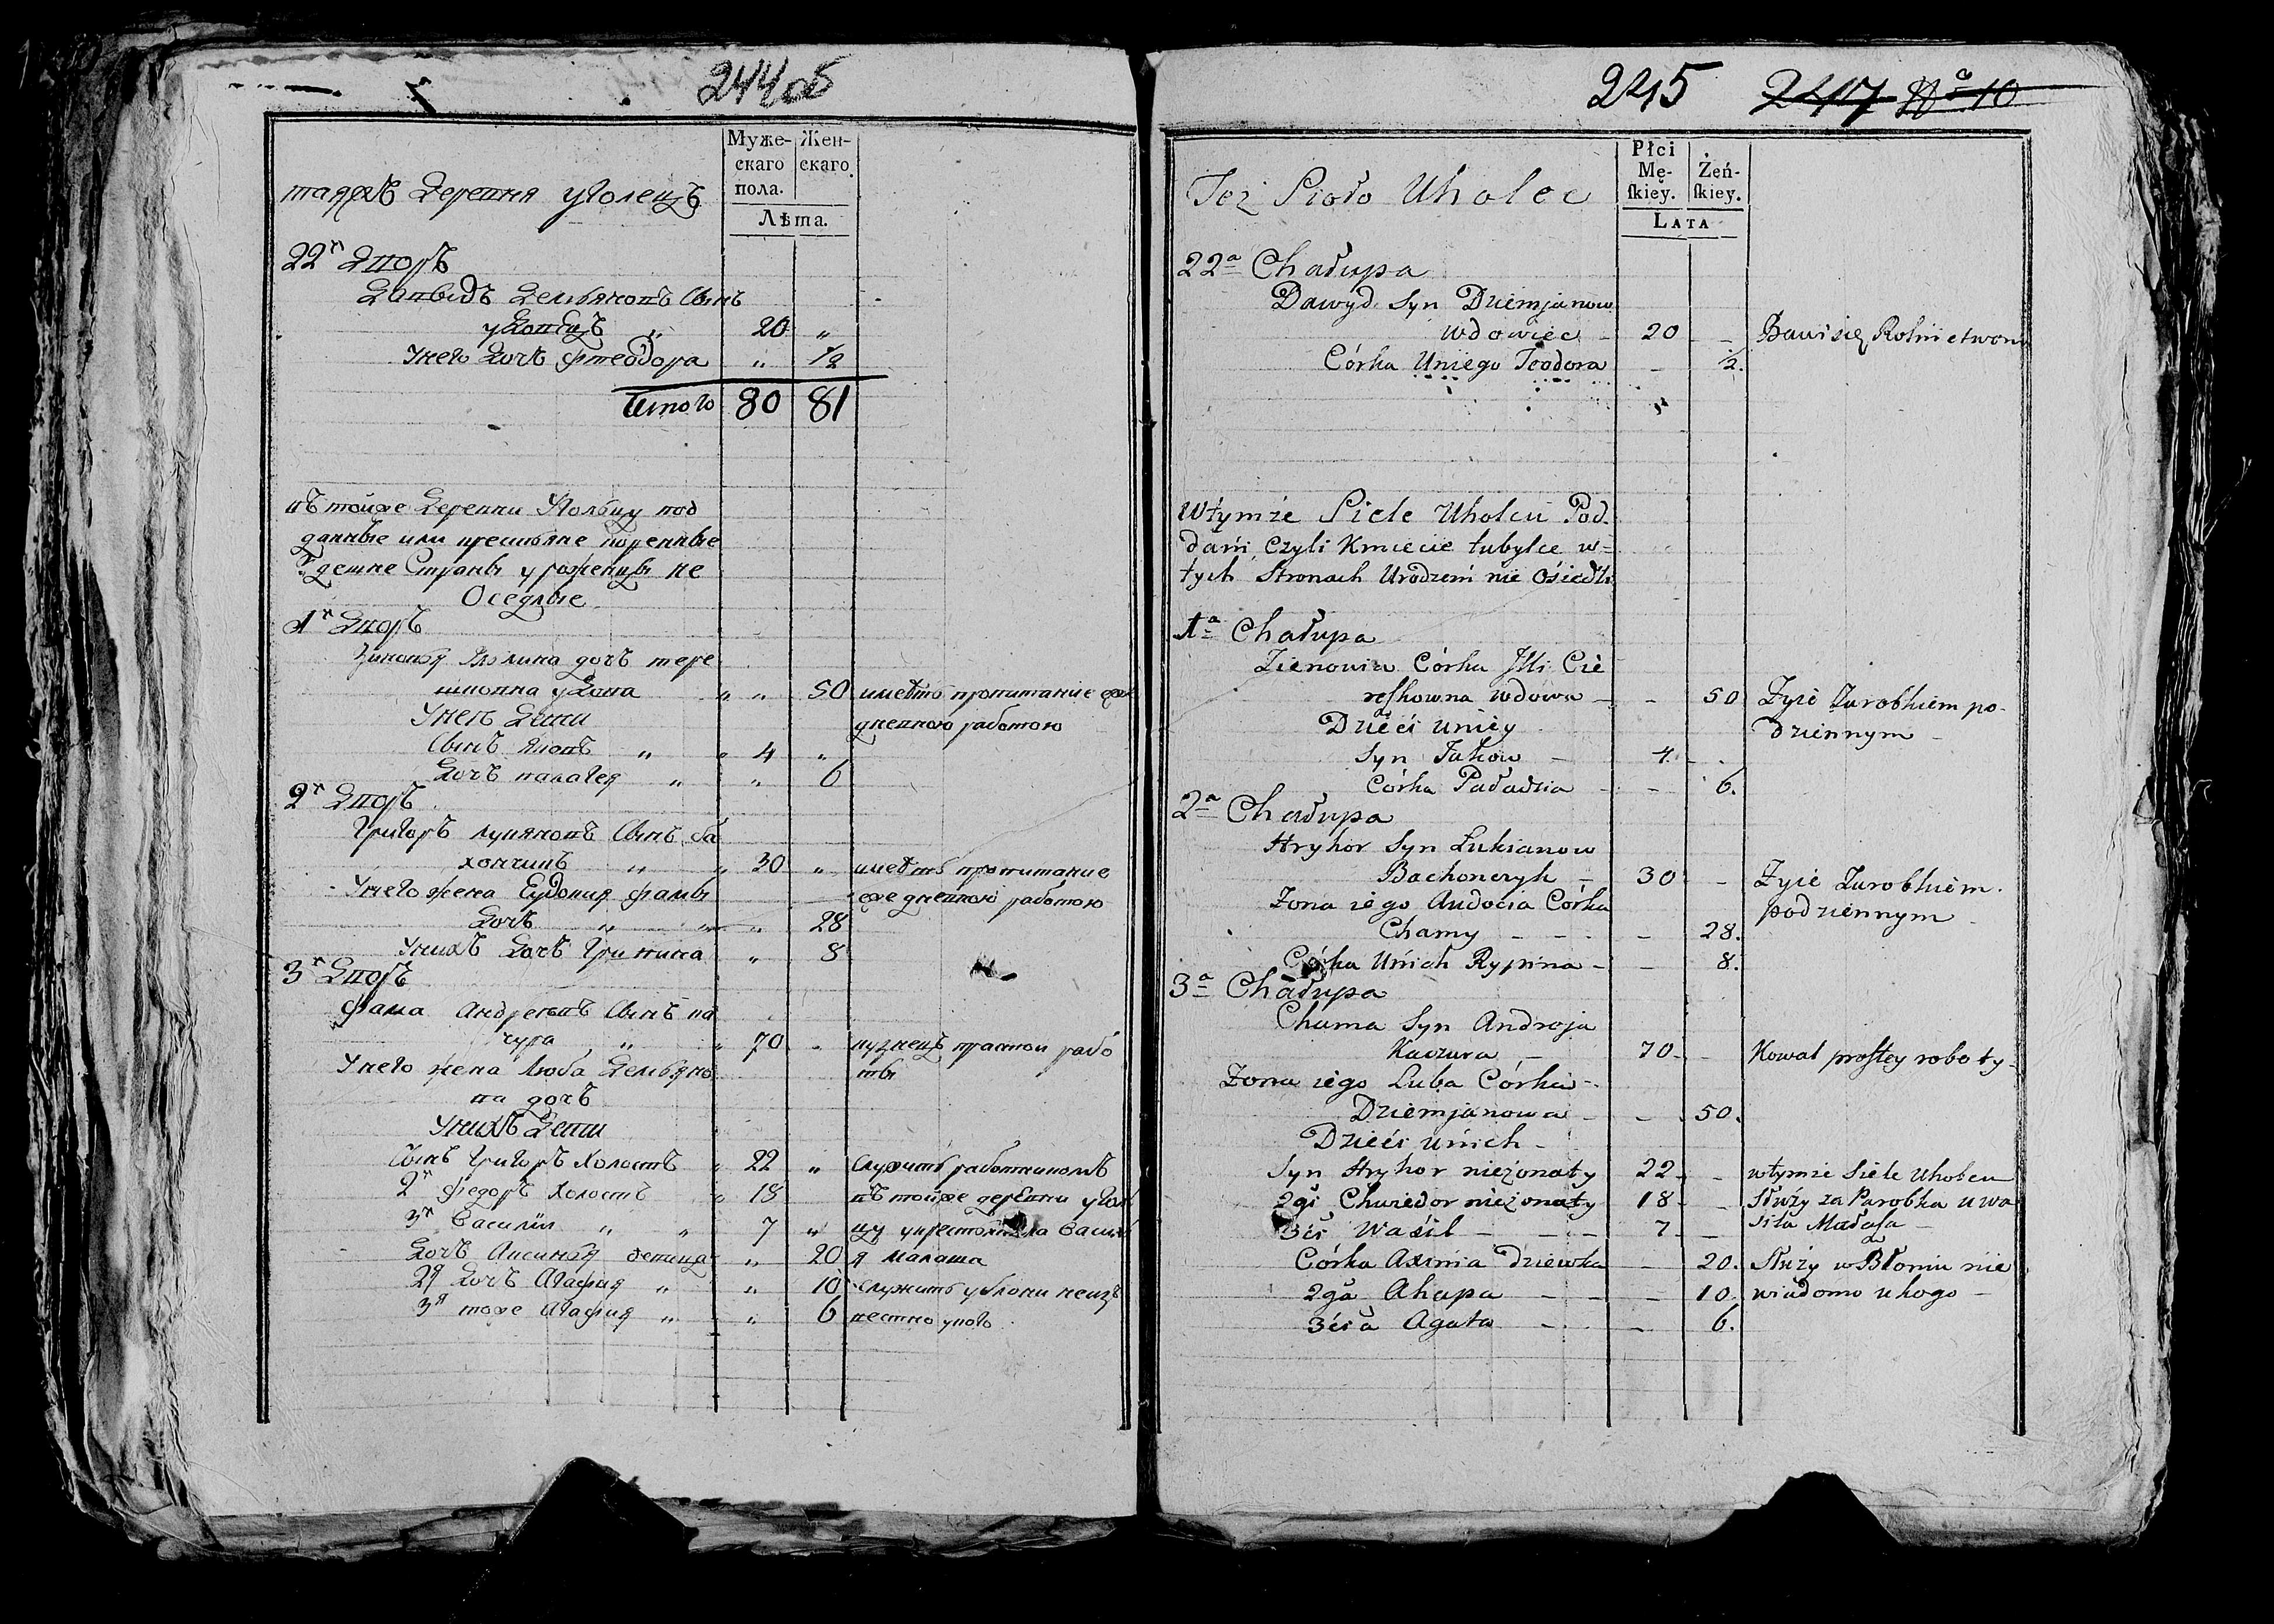 244об
Муже-
скаго
пола.
Жен-
скаго.
Лѣта.
таяжъ Деревня Уголецъ
22й Дворъ
Давыдъ Демьяновъ Сынъ
удовецъ " 20 "
У него дочь Фтеодора " 1/2
Итого 80 81
въ тойже Деревни Угольцу под
данные или крестьяне коренные
здешне Страны уроженцы не
Оседлые
1й Дворъ
Зиновя Илина дочъ тере
шковна удова " " 50 имеетъ пропитание
У неё Дети дневною работою
Сынъ Яковъ " " 4 "
Дочъ палагея " " 6
2й Дворъ
Григоръ Лукяновъ Сынъ ба
" " 30 " имеетъ пропитание
У него жена Евдокия Фамы дневною работою
Дочъ " " " 28
У нихъ дочъ " 8
3й Дворъ
Фама Андреевъ Сынъ ка
чура " " 70 " кузнецъ прастой рабо
У него жена Люба Демьяно ты
ва дочъ
У нихъ Дети
Сынъ Григоръ Холостъ " 22 " Служитъ работникомъ
2й Федоръ Холостъ " 18 въ тойже деревни Уголь
3й Василий " " 7 " цу у крестьянина Васил
Дочъ Аксиня девица " 20 я Малаша
2я дочъ Агафия " " 10 Служитъ у блони неиз
3я тоже Агафия " " 6 вестно у кого
245 247 № 10
Płci
Mę-
skiey.
Żeń-
skiey.
LATA
Też Sioło Uholec
22a Chałupa
Dawyd Syn Dziemjanow
wdowiec - 20 - Bawi się Rolnictwem
Córka Uniego Teodora - 1/2.
Wtymże Siele Uholcu Pod-
dani czyli Kmiecie tubylce w-
tych Stronach Urodzeni nie Osiedli
1a Chałupa
Zienowia Córka Illi Cie
reszkowna wdowa - - 50 Żyie Zarobkiem po-
Dzieći uniey dziennym -
Syn Jakow - 4. - .
Córka Pałazia - - 6.
2a Chałupa
Hryhor Syn Łukianow
30 - Żyie Zarobkiem
Żona iego Audocia Córka podziennym -
Chamy - - - - 28.
Córka Unich Rypina - - 8.
3a Chałupa
Chama Syn Andreja
Kaczura - 70 - Kowal prostey roboty -
Żona iego Luba Córka -
Dziemjanowa - - 50.
Dzieći unich -
Syn Hryhor nieżonaty 22 - wtymże Siele Uholcu
2gi Chwiedor nieżonaty 18 - Służy za Parobka u Wa
3ći Wasil - - - 7 - siła Małasza -
Córka Axinia Dziewka - 20. Służy w Błoniu nie
2ga Ahapa - - - 10. wiadomo ukogo -
3ćia Agata - - - 6.